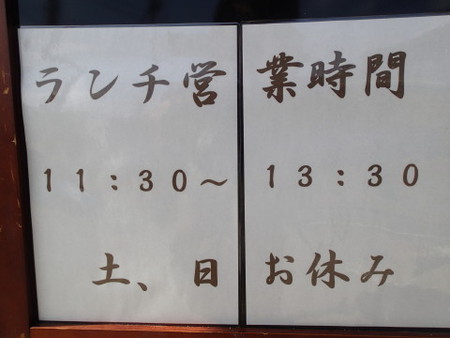 ランチ営業時間
11:30～13:30
土、日お休み